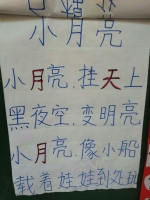 小月亮
小月亮,挂天上
黑夜空,变明亮
小月亮,像小船
载着娃娃到处玩